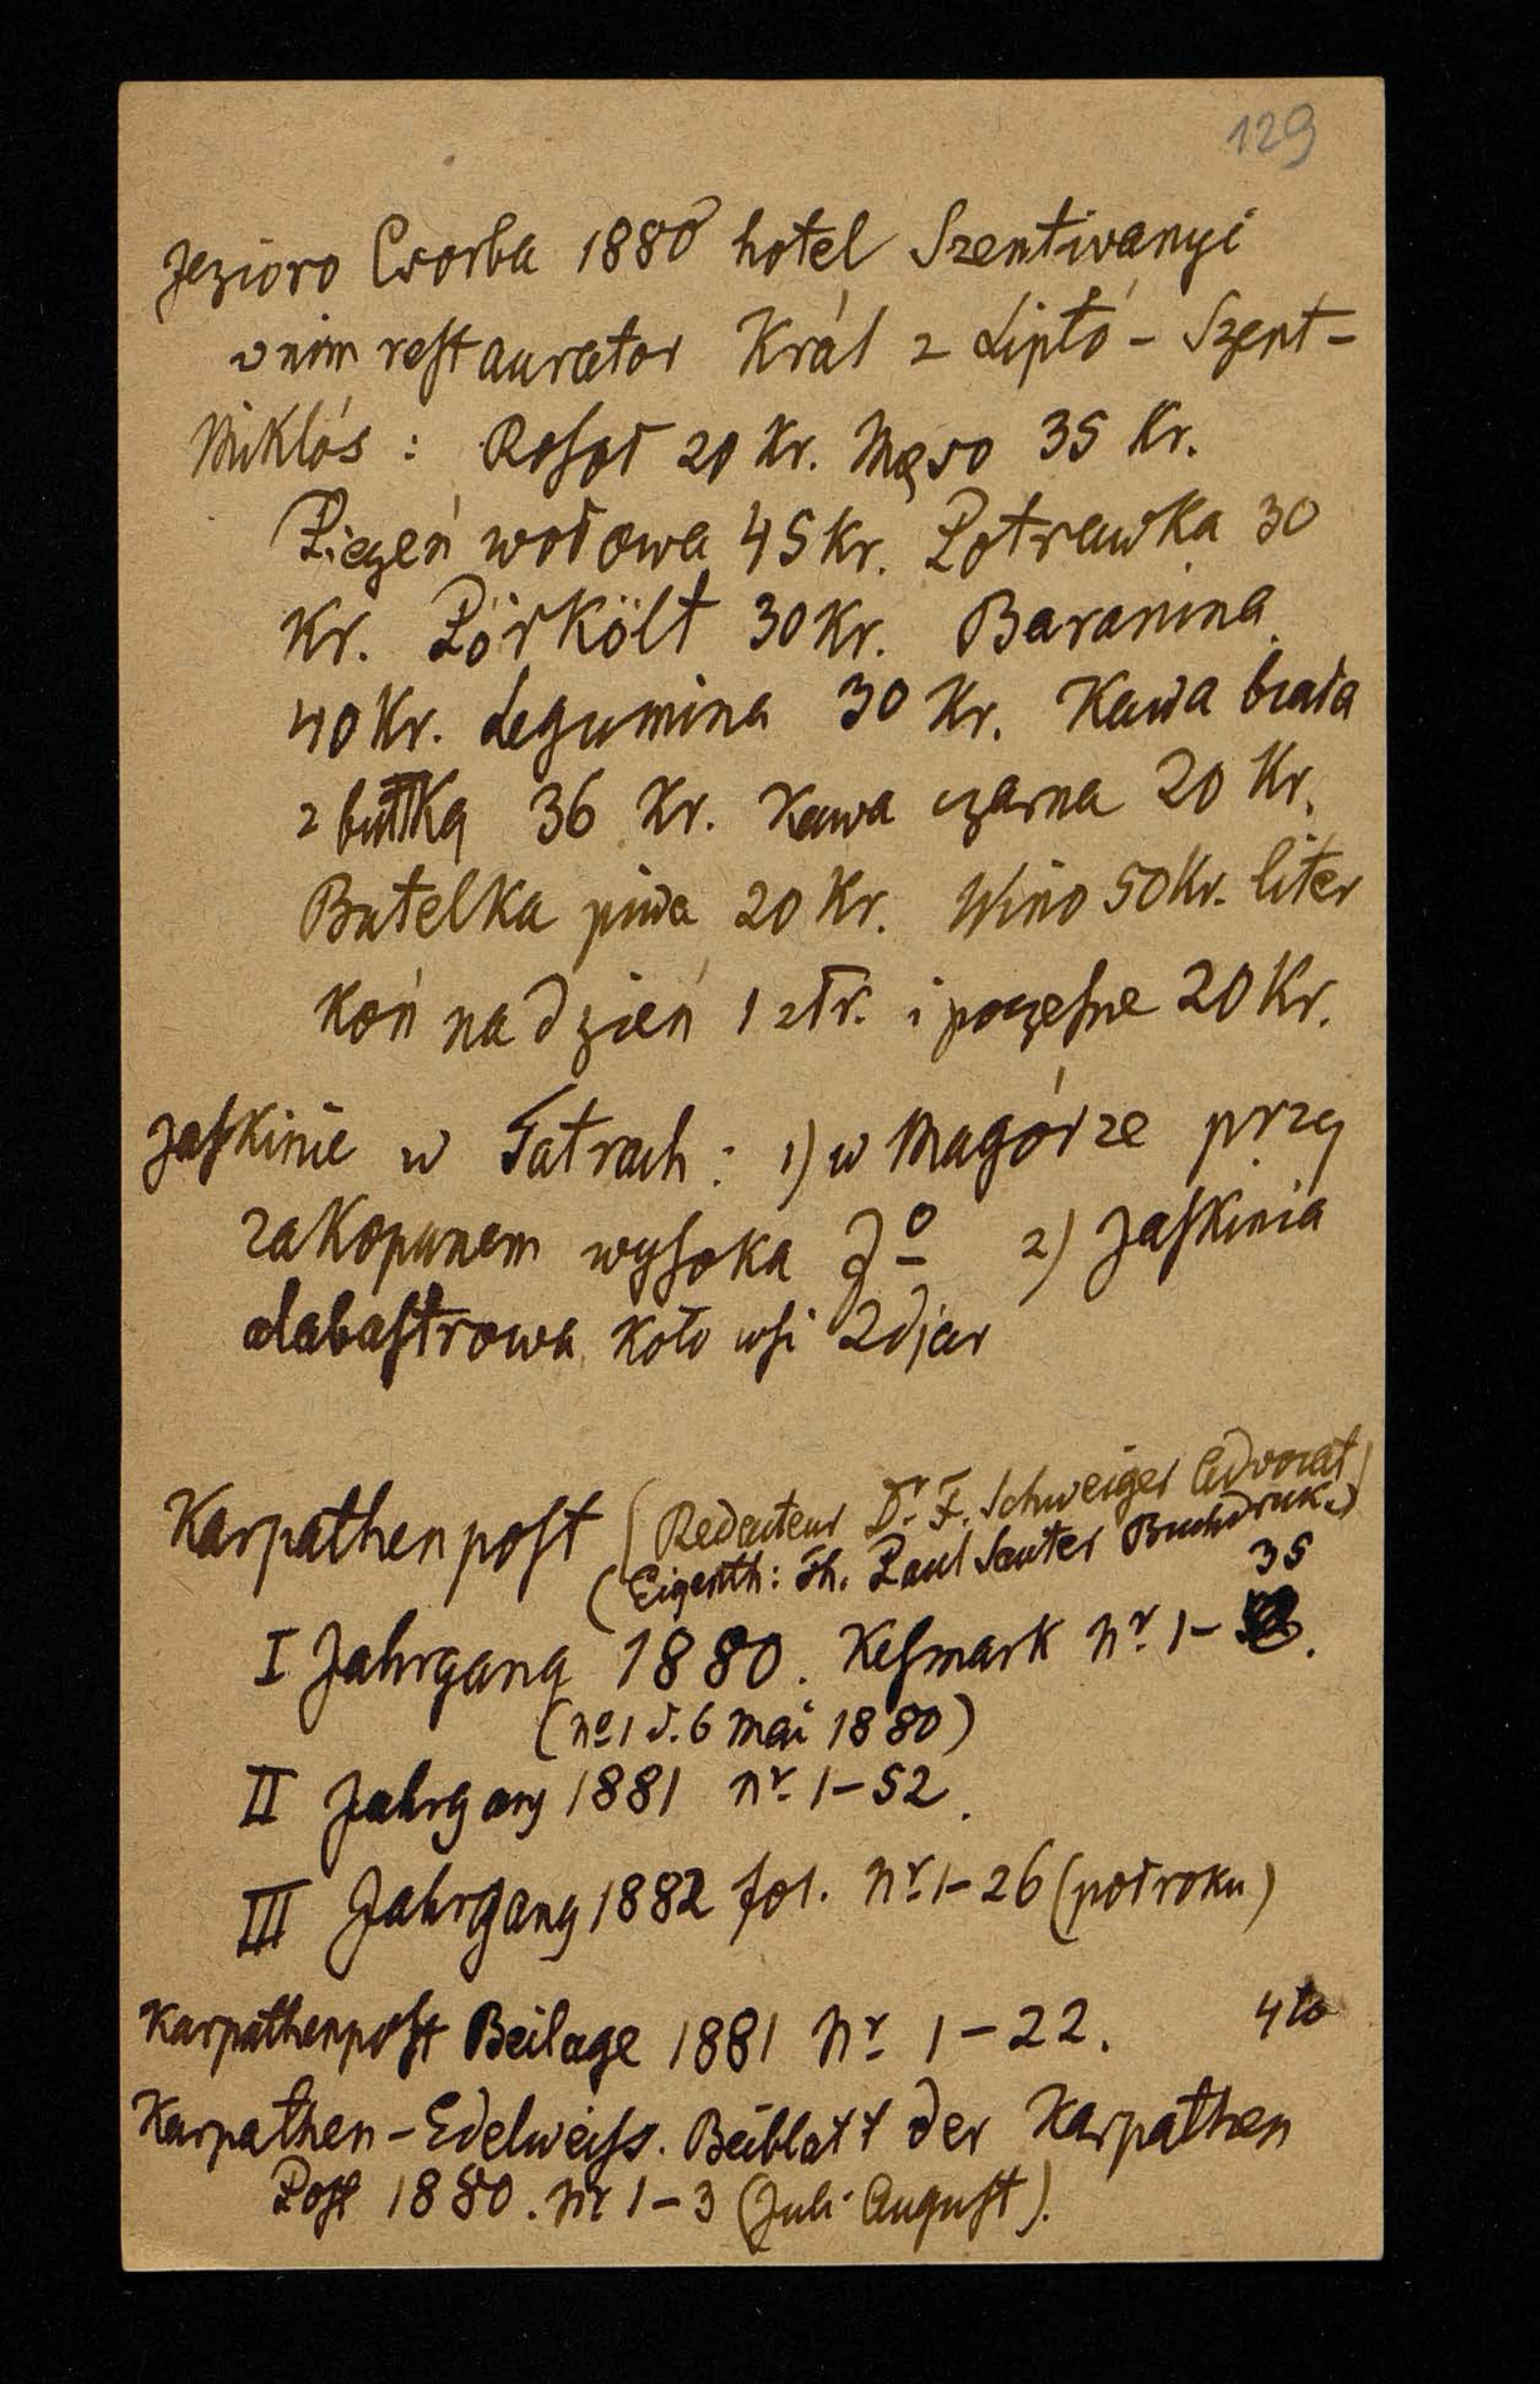 129
Jezioro Csorba 1880 hotel Szentivanyi
w nim restaurator Král z Liptó - Szent-
Miklós : Rosół 20 Kr. Mięso 35 Kr.
Pieczeń wołowa 45 Kr. Potrawka 30
Kr. Pörkölt 30 Kr. Baranina
40 Kr. Legumina 30 Kr. Kawa biała
z bułką 36 Kr. Kawa czarna 20 Kr.
Butelka piwa 20 Kr. Wino 50 Kr. liter
Koń na dzień 1 złr. i poczesne 20 Kr.
Jaskinie w Tatrach : 1) w Magórze przy
Zakopanem wysoka 2) Jaskinia
alabastrowa koło wsi Zdjar
Karpathenpost (Redacteur Dr. F. Schweiger Advocat)
(Eigenth: Th. Paul Sauter Buchdruck.)
35
I Jahrgang 1880. Kesmark Nr. 1-
(No 1 d. 6 Mai 1880)
II Jahrgang 1881 Nr. 1-52.
III Jahrgang 1882 fol. Nr. 1-26 (pół roku)
Karpathenpost Beilage 1881 Nr. 1-22. 4to
Karpathen-Edelweiss. Beiblatt der Karpathen
Post 1880. Nr 1-3 (Juli-August).